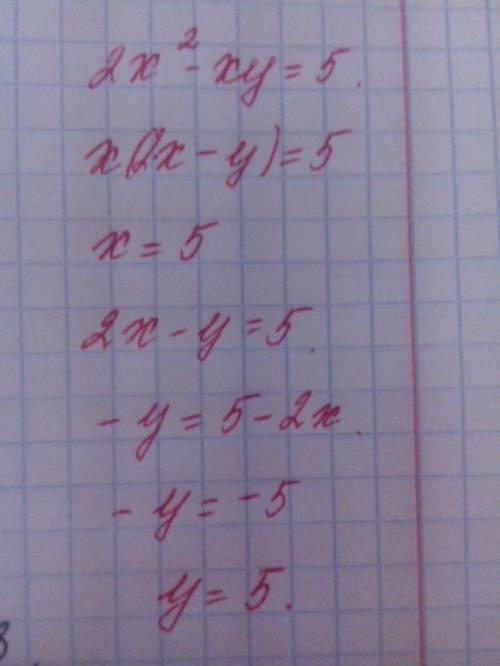 2x² - xy = 5.
x(2x - y) = 5
x = 5
2x - y = 5.
- y = 5 - 2x.
- y = -5
y = 5.